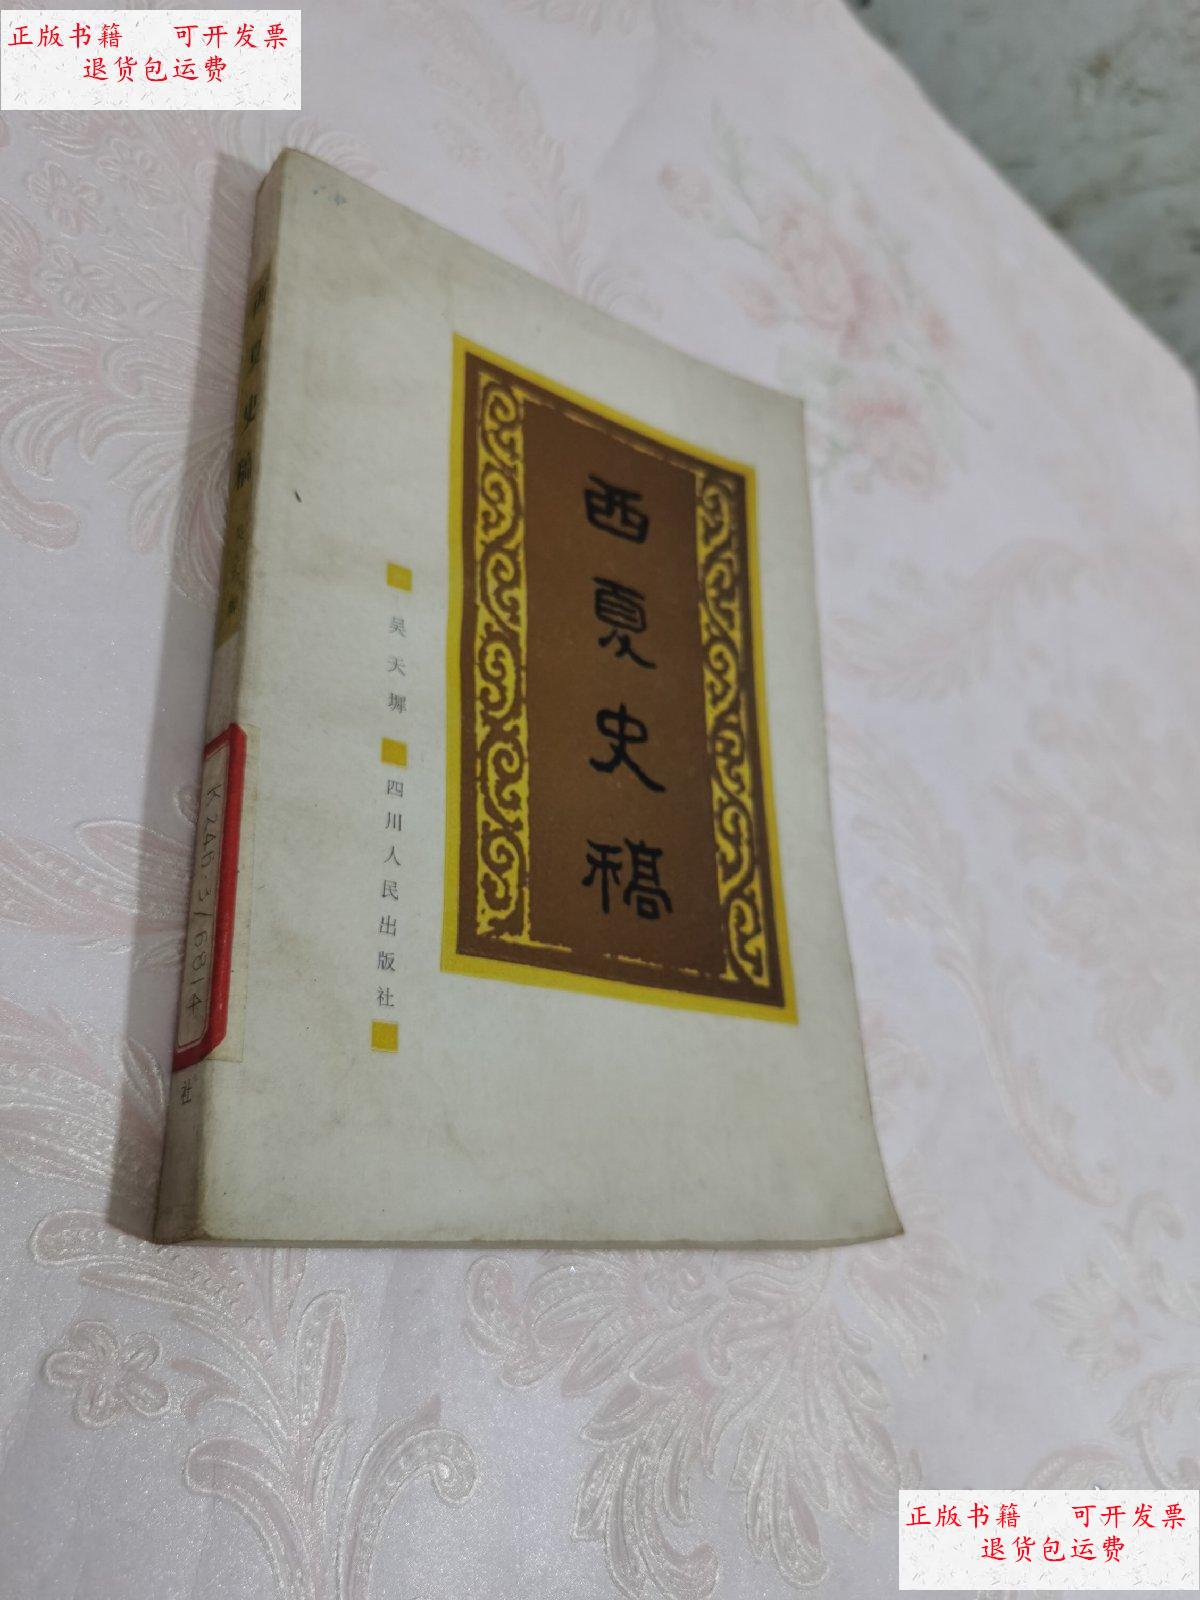 正版书籍 可开发票
退货包运费
西夏史稿
吴天墀
四川人民出版社
西夏史稿
K246.3/6814
社
正版书籍 可开发票
退货包运费